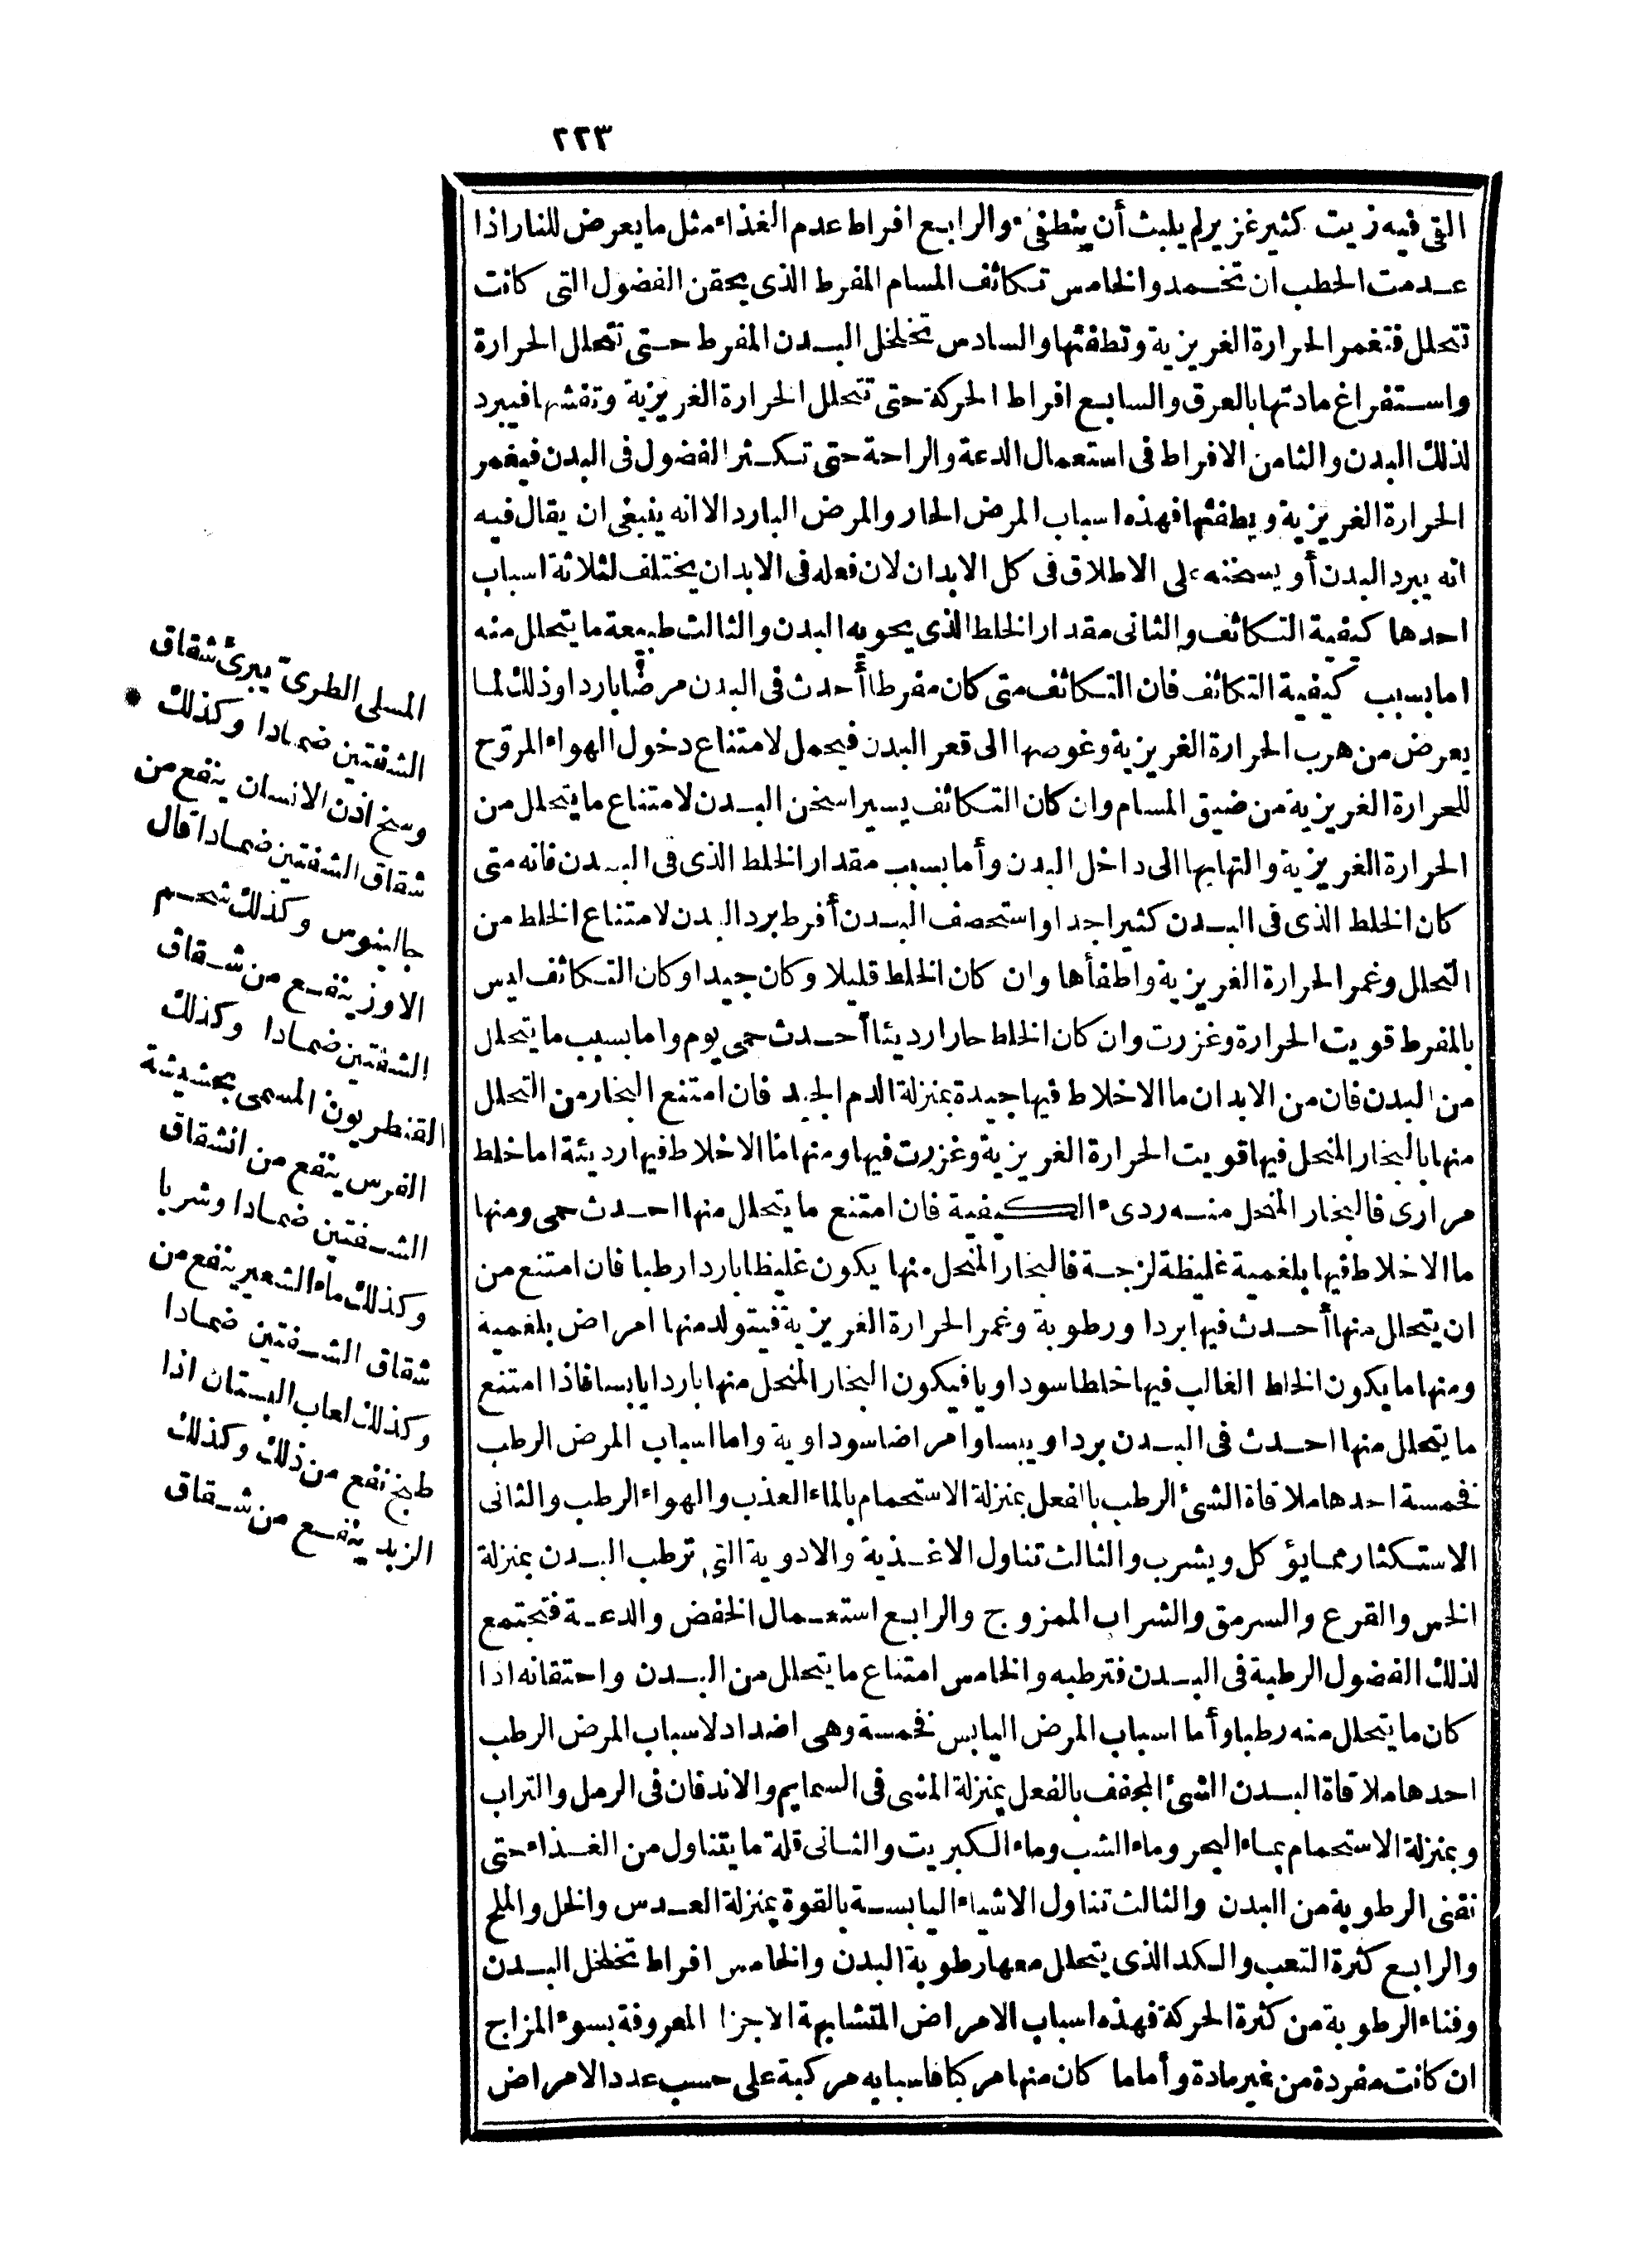 ٢٢٣
التى فيه زيت كثير غزير لم يلبث أن ينطفىء والرابع افراط عدم الغذاء مثل ما يعرض للنار اذا
عدمت الحطب ان تخمد والخامس تكاثف المسام المفرط الذى يحقن الفضول التى كانت
تتحلل فتغمر الحرارة الغريزية وتطفئها والسادس تخلخل البدن المفرط حتى تتحلل الحرارة
واستفراغ مادتها بالعرق والسابع افراط الحركة حتى تتحلل الحرارة الغريزية وتفشها فيبرد
لذلك البدن والثامن الافراط فى استعمال الدعة والراحة حتى تكثر الفضول فى البدن فيغمر
الحرارة الغريزية ويطفئها فهذه اسباب المرض الحار والمرض البارد الا انه ينبغى ان يقال فيه
انه يبرد البدن أو يسخنه على الاطلاق فى كل الابدان لان فعله فى الابدان يختلف لثلاثة اسباب
احدها كيفية التكاثف والثانى مقدار الخلط الذى يحويه البدن والثالث طبيعة ما يتحلل منه
اما بسبب كيفية التكاثف فان التكاثف متى كان مفرطا أحدث فى البدن مرضا باردا وذلك لما
يعرض من هرب الحرارة الغريزية وغوصها الى قعر البدن فيحمل لامتناع دخول الهواء المروّح
للحرارة الغريزية من ضيق المسام وان كان التكاثف يسيرا سخن البدن لامتناع ما يتحلل من
الحرارة الغريزية والتهابها الى داخل البدن وأما بسبب مقدار الخلط الذى فى البدن فانه متى
كان الخلط الذى فى البدن كثيرا جدا واستحصف البدن أفرط برد البدن لامتناع الخلط من
التحلل وغمر الحرارة الغريزية واطفأها وان كان الخلط قليلا وكان جيدا وكان التكاثف ليس
بالمفرط قويت الحرارة وغزرت وان كان الخلط حارا رديئا أحدث حمى يوم واما بسبب ما يتحلل
من البدن فان من الابدان ما الاخلاط فيها جيدة بمنزلة الدم الجيد فان امتنع البخار من التحلل
منها بالبخار المنحل فيها قويت الحرارة الغريزية وغزرت فيها ومنها ما الاخلاط فيها رديئة اما خلط
مرارى فالبخار المنحل منه ردىء الكيفية فان امتنع ما يتحلل منها احدث حمى ومنها
ما الاخلاط فيها بلغمية غليظة لزجة فالبخار المنحل منها يكون غليظا باردا رطبا فان امتنع من
ان يتحلل منها أحدث فيها بردا ورطوبة وغمر الحرارة الغريزية فيتولد منها امراض بلغمية
ومنها ما يكون الخلط الغالب فيها خلطا سوداويا فيكون البخار المنحل منها باردا يابسا فاذا امتنع
ما يتحلل منها احدث فى البدن بردا ويبسا وامراضا سوداوية واما اسباب المرض الرطب
فخمسة احدها ملاقاة الشئ الرطب بالفعل بمنزلة الاستحمام بالماء العذب والهواء الرطب والثانى
الاستكثار مما يؤكل ويشرب والثالث تناول الاغذية والادوية التى ترطب البدن بمنزلة
الخس والقرع والسرمق والشراب الممزوج والرابع استعمال الخفض والدعة فتجتمع
لذلك الفضول الرطبة فى البدن فترطبه والخامس امتناع ما يتحلل من البدن واحتقانه اذا
كان ما يتحلل منه رطبا وأما اسباب المرض اليابس فخمسة وهى اضداد لاسباب المرض الرطب
احدها ملاقاة البدن الشئ المجفف بالفعل بمنزلة المشى فى السمايم والاندفان فى الرمل والتراب
وبمنزلة الاستحمام بماء البحر وماء الشب وماء الكبريت والثانى قلة ما يتناول من الغذاء حتى
تفنى الرطوبة من البدن والثالث تناول الاشياء اليابسة بالقوة بمنزلة العدس والخل والملح
والرابع كثرة التعب والكد الذى يتحلل معها رطوبة البدن والخامس افراط تخلخل البدن
وفناء الرطوبة من كثرة الحركة فهذه اسباب الامراض المتشابهة الاجزا المعروفة بسوء المزاج
ان كانت مفردة من غير مادة وأما ما كان منها مركبا فاسبابه مركبة على حسب عدد الامراض
المسلى الطرىّ يبرئ شقاق
الشفتين ضمادا وكذلك *
وسخ اذن الانسان ينفع من
شقاق الشفتين ضمادا قال
جالينوس وكذلك شحم
الاوز ينفع من شقاق
الشفتين ضمادا وكذلك
القنطريون المسمى بحشيشة
الفرس ينفع من انشقاق
الشفتين ضمادا وشربا
وكذلك ماء الشعير ينفع من
شقاق الشفتين ضمادا
وكذلك لعاب البستان اذا
طبخ نفع من ذلك وكذلك
الزبد ينفع من شقاق